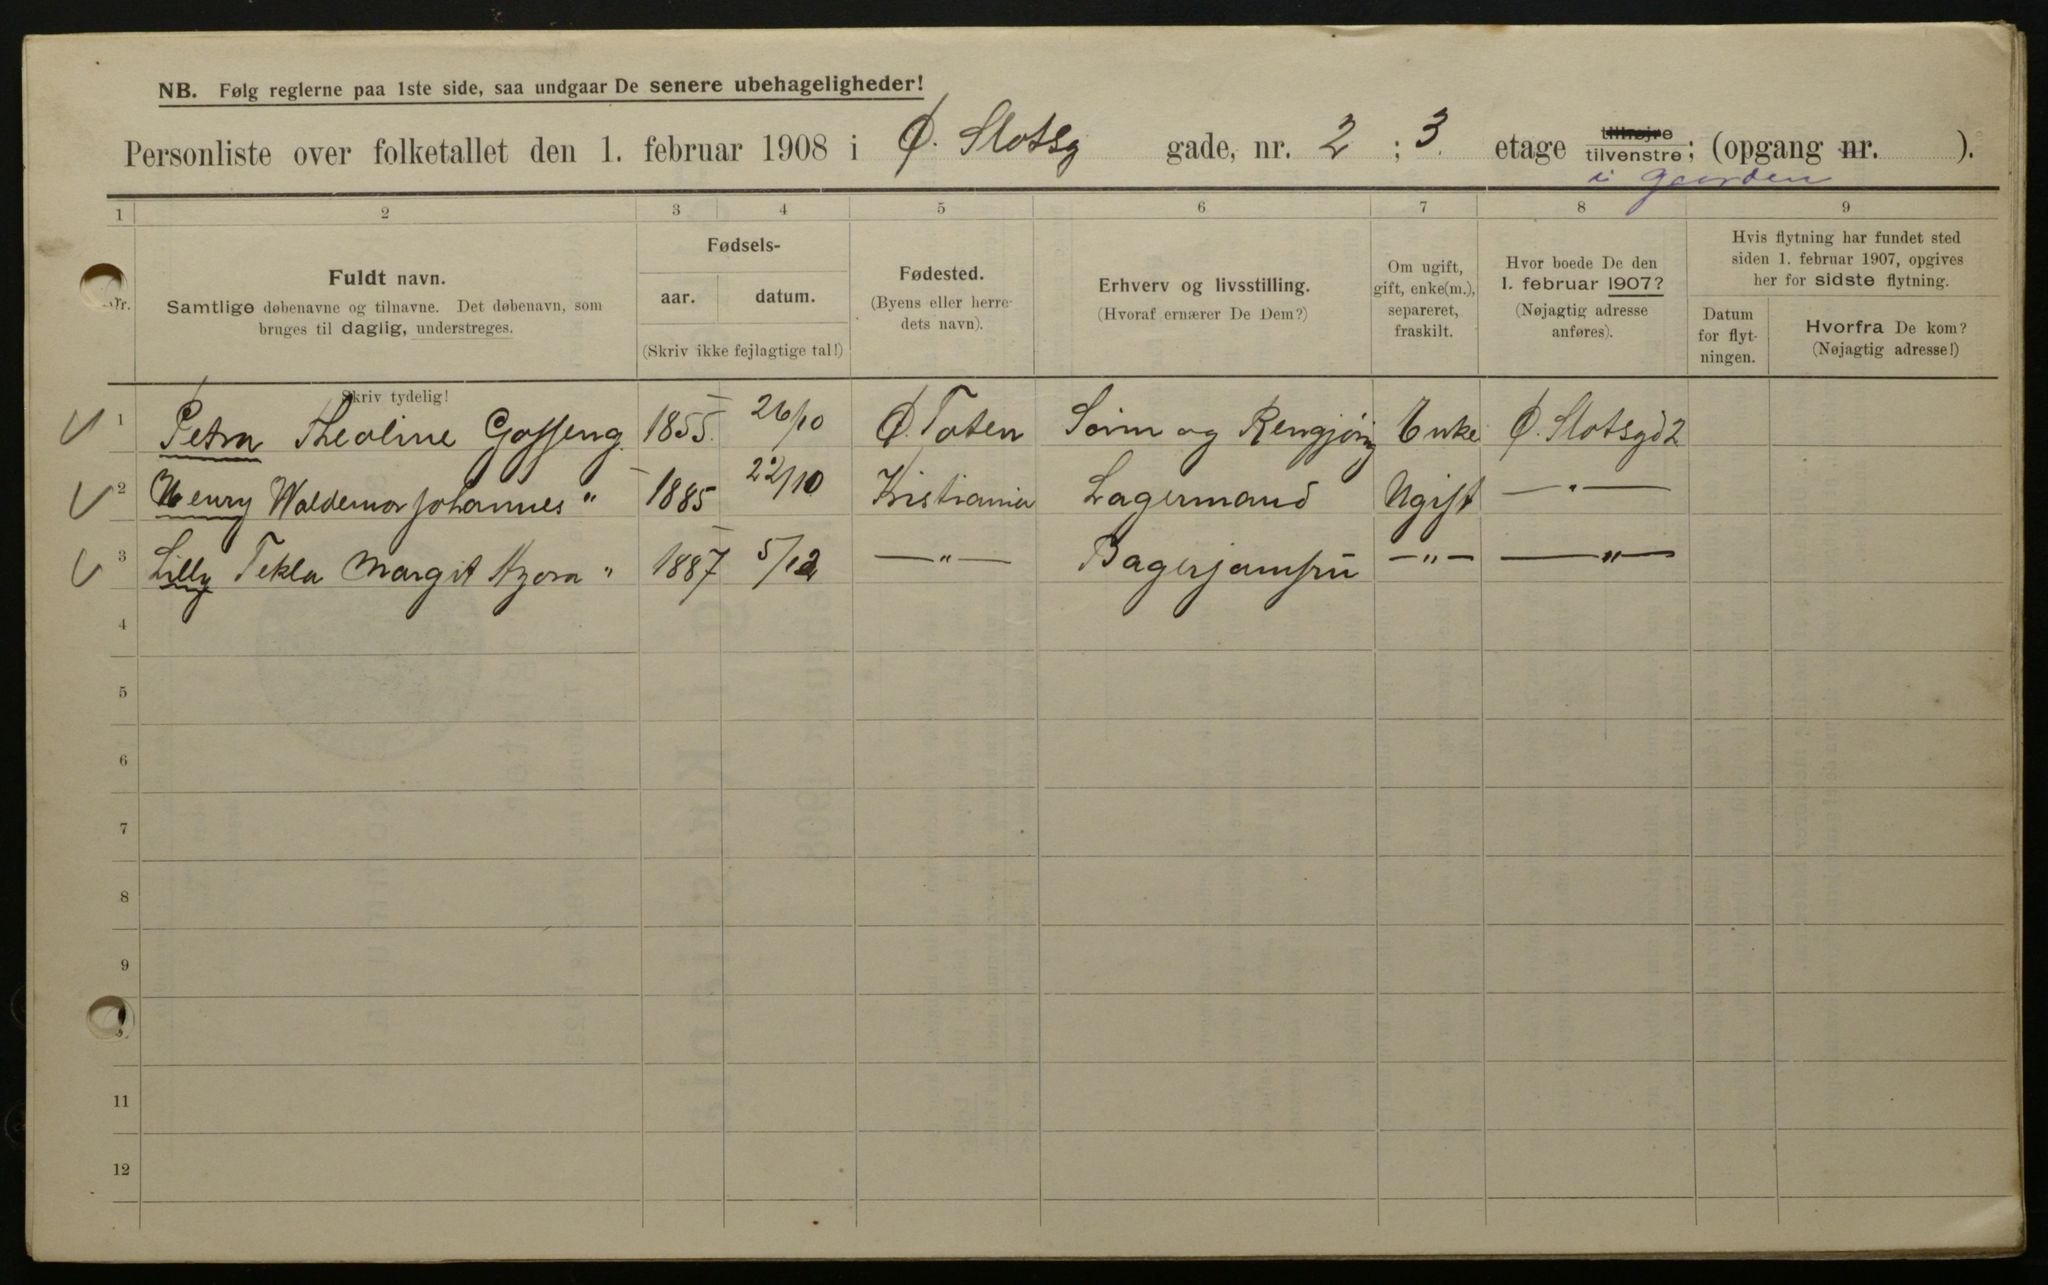 NB. Følg reglerne paa 1ste side, saa undgaar De senere ubehageligheder!
Personliste over folketallet den 1. februar 1908 i Ø. Slotsg gade, nr. 2 ; 3. etage tilhøjre tilvenstre; (opgang nr. ).
i gaarden
1 2 3 4 5 6 7 8 9
Nr.
Fuldt navn.
Samtlige døbenavne og tilnavne. Det døbenavn, som
bruges til daglig, understreges.
Skriv tydelig!
Fødsels-
aar. datum.
(Skriv ikke fejlagtige tal!)
Fødested.
(Byens eller herre-
dets navn).
Erhverv og livsstilling.
(Hvoraf ernærer De Dem?)
Om ugift,
gift, enke(m.),
separeret,
fraskilt.
Hvor boede De den
1. februar 1907?
(Nøjagtig adresse
anføres).
Hvis flytning har fundet sted
siden 1. februar 1907, opgives
her for sidste flytning.
Datum
for flyt-
ningen.
Hvorfra De kom?
(Nøjagtig adresse!)
1 Petra Theoline 1855. 26/10 Ø. Toten Søm og Rengjøring Enke Ø. Slotsgd 2
2 Henry Waldemar Johannes " 1885 22/10 Kristiania Lagermand Ugift — " —
3 Lilly Tekla Margit " 1887 5/12 — " — Bagerjomfru — " — — " —
4
5
6
7
8
9
11
12